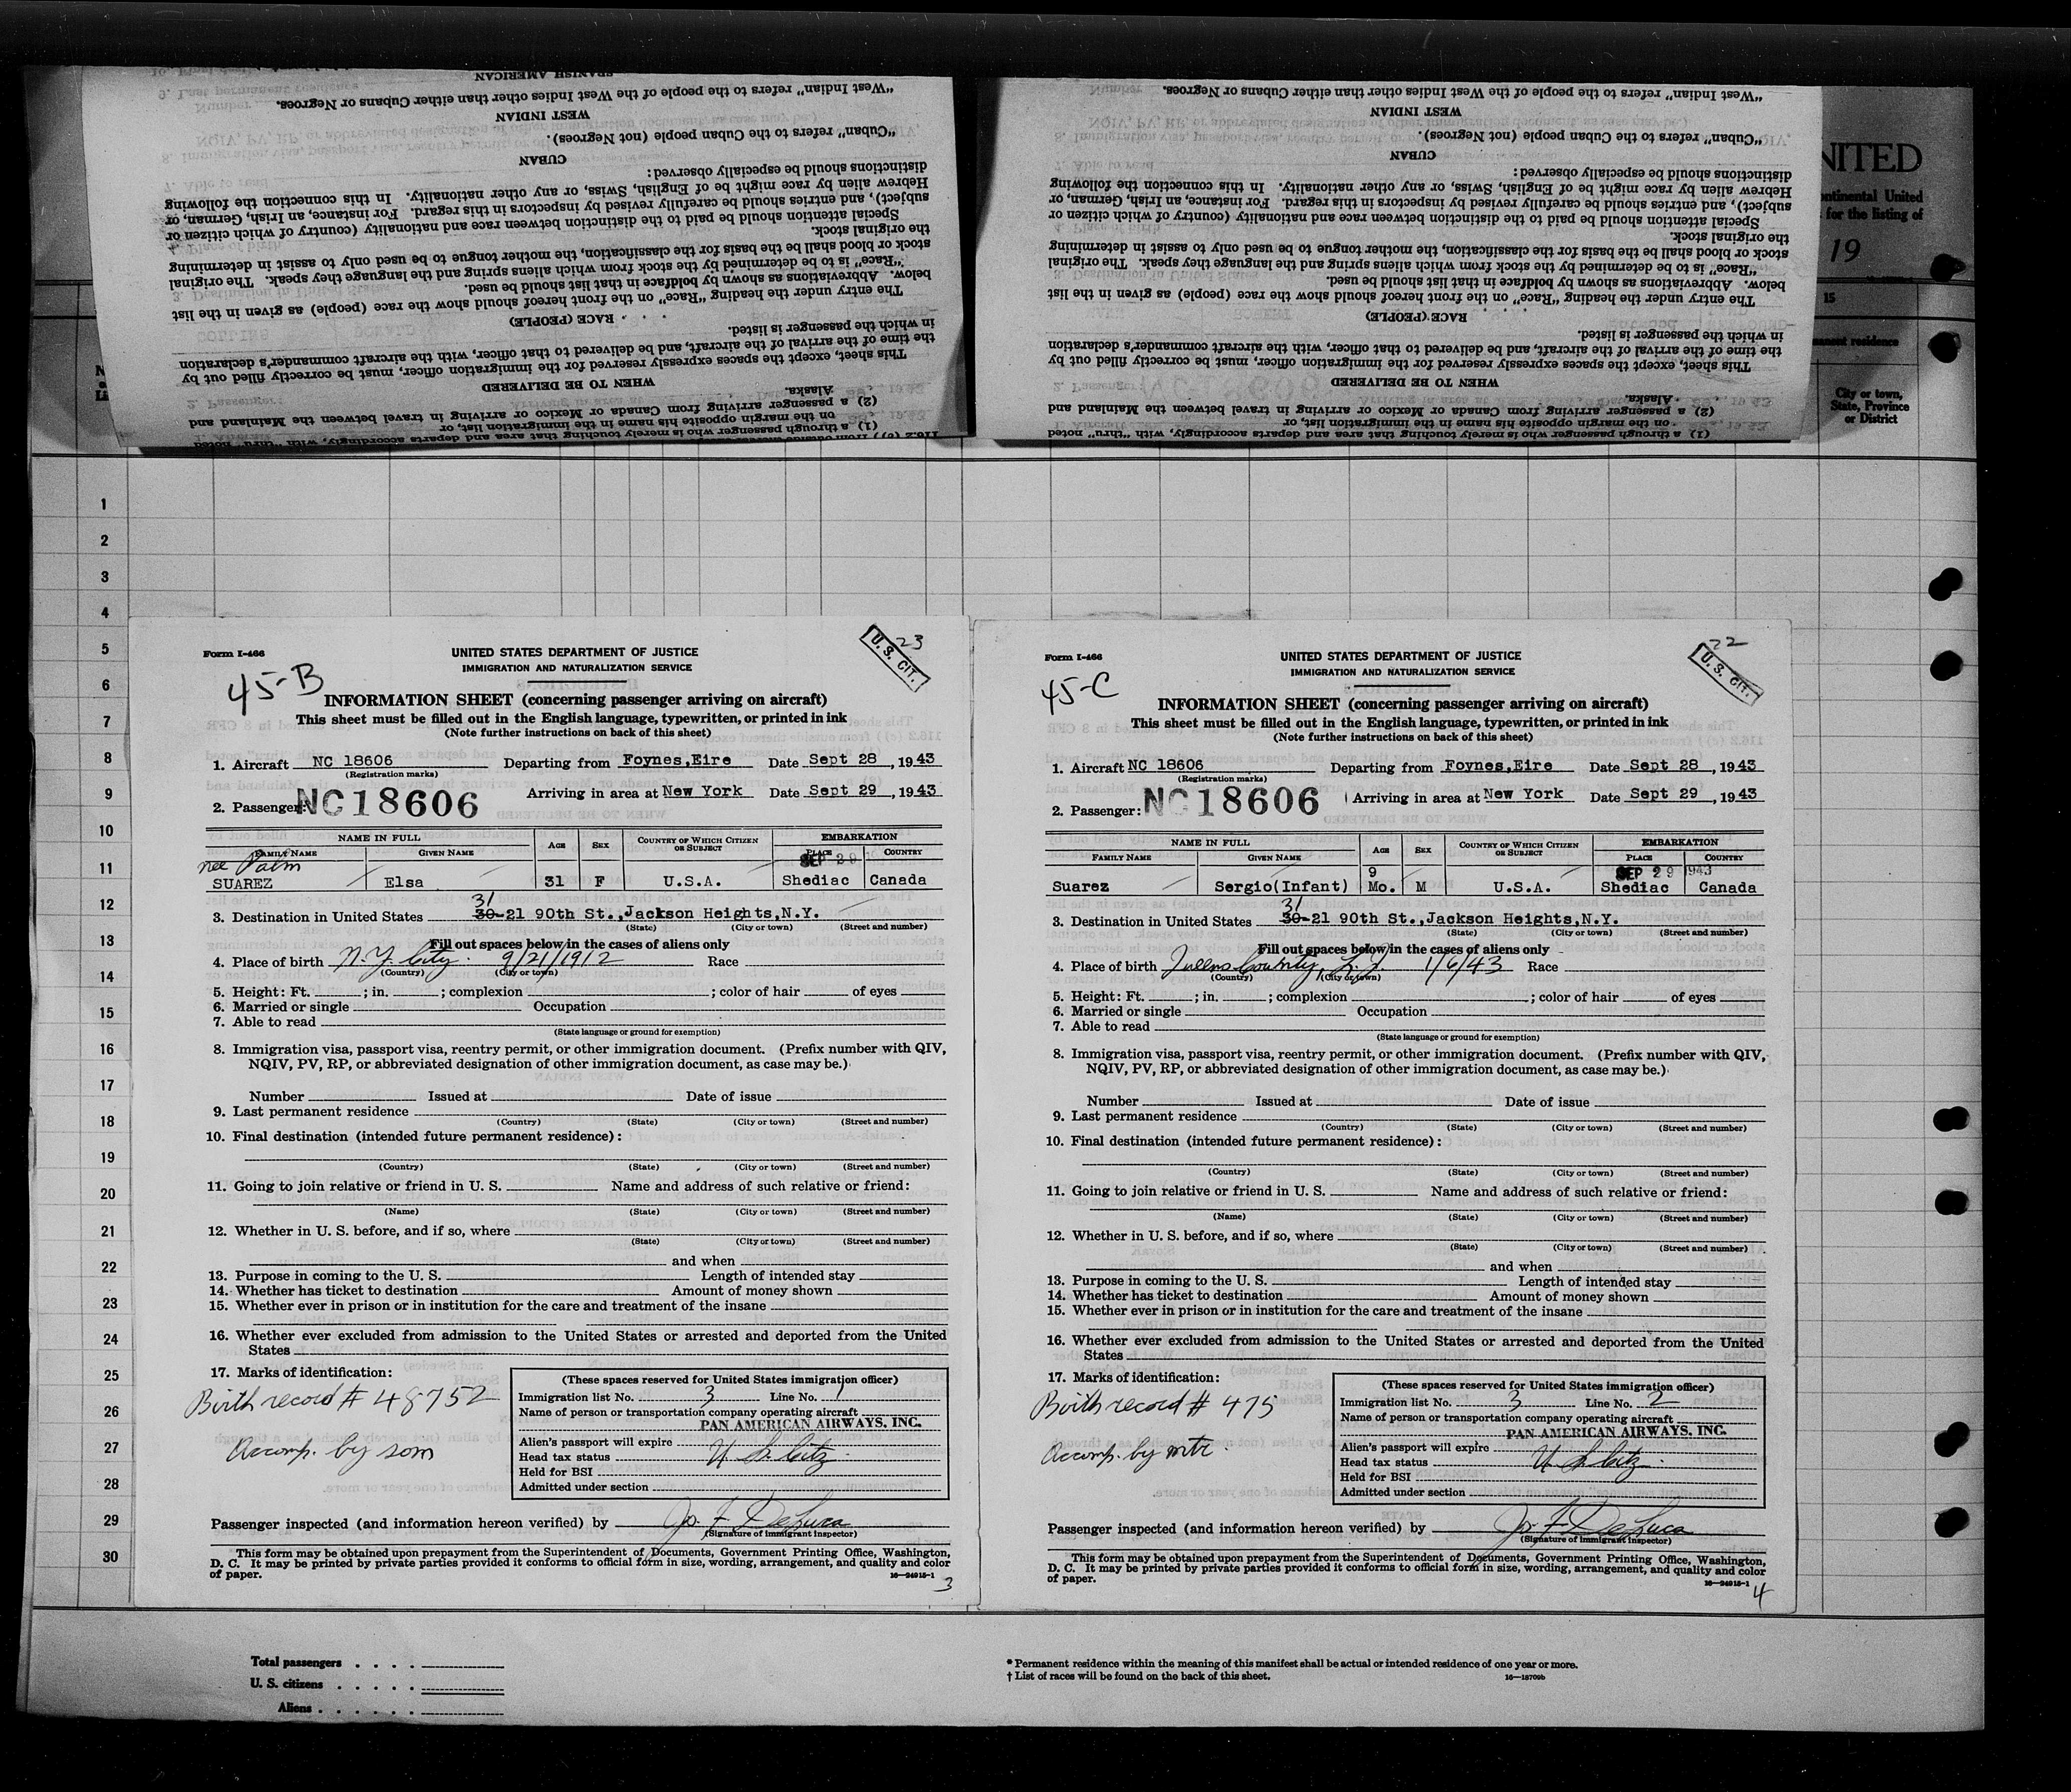 SPANISH AMERICAN
"West Indian" refers to the people of the West Indies other than either Cubans or Negroes.
WEST INDIAN
"Cuban" refers to the Cuban people (not Negroes).
CUBAN
distinctions should be especially observed:
Hebrew alien by race might be of English, Swiss, or any other nationality. In this connection the following
subject), and entries should be carefully revised by inspectors in this regard. For instance, an Irish, German, or
Special attention should be paid to the distinction between race and nationality (country of which citizen or
the original stock.
stock or blood shall be the basis for the classification, the mother tongue to be used only to assist in determining
"Race" is to be determined by the stock from which aliens spring and the language they speak. The original
below. Abbreviations as shown by boldface in that list should be used.
The entry under the heading "Race" on the front hereof should show the race (people) as given in the list
RACE (PEOPLE)
in which the passenger is listed.
the time of the arrival of the aircraft, and be delivered to that officer, with the aircraft commander's declaration
This sheet, except the spaces expressly reserved for the immigration officer, must be correctly filled out by
WHEN TO BE DELIVERED
Alaska.
(2) a passenger arriving from Canada or Mexico or arriving in travel between the Mainland and
on the margin opposite his name in the immigration list, or
(1) a through passenger who is merely touching that area and departs accordingly, with "thru" noted
"West Indian" refers to the people of the West Indies other than either Cubans or Negroes.
WEST INDIAN
"Cuban" refers to the Cuban people (not Negroes).
CUBAN
distinctions should be especially observed:
Hebrew alien by race might be of English, Swiss, or any other nationality. In this connection the following
subject), and entries should be carefully revised by inspectors in this regard. For instance, an Irish, German, or
Special attention should be paid to the distinction between race and nationality (country of which citizen or
the original stock.
stock or blood shall be the basis for the classification, the mother tongue to be used only to assist in determining
"Race" is to be determined by the stock from which aliens spring and the language they speak. The original
below. Abbreviations as shown by boldface in that list should be used.
The entry under the heading "Race" on the front hereof should show the race (people) as given in the list
RACE (PEOPLE)
in which the passenger is listed.
the time of the arrival of the aircraft, and be delivered to that officer, with the aircraft commander's declaration
This sheet, except the spaces expressly reserved for the immigration officer, must be correctly filled out by
WHEN TO BE DELIVERED
Alaska.
(2) a passenger arriving from Canada or Mexico or arriving in travel between the Mainland and
on the margin opposite his name in the immigration list, or
(1) a through passenger who is merely touching that area and departs accordingly, with "thru" noted
NITED
ontinental United
for the listing of
19
15
manent residence
City or town,
State, Province
or District
1
2
3
4
5
6
7
8
9
10
11
12
13
14
15
16
17
18
19
20
21
22
23
24
25
26
27
28
29
30
Form I-466
45-B
23
U. S. CIT.
UNITED STATES DEPARTMENT OF JUSTICE
IMMIGRATION AND NATURALIZATION SERVICE
INFORMATION SHEET (concerning passenger arriving on aircraft)
This sheet must be filled out in the English language, typewritten, or printed in ink
(Note further instructions on back of this sheet)
1. Aircraft NC 18606 Departing from Foynes,Eire Date Sept 28, 1943
(Registration marks)
Arriving in area at New York Date Sept 29, 1943
2. Passenger: NC18606
NAME IN FULL AGE SEX COUNTRY OF WHICH CITIZEN OR SUBJECT EMBARKATION
FAMILY NAME GIVEN NAME PLACE COUNTRY
nee Palm SEP 29
SUAREZ Elsa 31 F U.S.A. Shediac Canada
31
3. Destination in United States 30-21 90th St.,Jackson Heights,N.Y.
(State) (City or town) (Street and number)
Fill out spaces below in the cases of aliens only
4. Place of birth N.Y. City. 9/21/1912 Race
(Country) (City or town)
5. Height: Ft. ; in. ; complexion ; color of hair of eyes
6. Married or single Occupation
7. Able to read
(State language or ground for exemption)
8. Immigration visa, passport visa, reentry permit, or other immigration document. (Prefix number with QIV,
NQIV, PV, RP, or abbreviated designation of other immigration document, as case may be.)
Number Issued at Date of issue
9. Last permanent residence
(Country) (State) (City or town) (Street and number)
10. Final destination (intended future permanent residence):
(Country) (State) (City or town) (Street and number)
11. Going to join relative or friend in U. S. Name and address of such relative or friend:
(Name) (State) (City or town) (Street and number)
12. Whether in U. S. before, and if so, where
(State) (City or town) (Street and number)
and when
13. Purpose in coming to the U. S. Length of intended stay
14. Whether has ticket to destination Amount of money shown
15. Whether ever in prison or in institution for the care and treatment of the insane
16. Whether ever excluded from admission to the United States or arrested and deported from the United
States
17. Marks of identification:
Birth record # 48752
Accomp. by son
(These spaces reserved for United States immigration officer)
Immigration list No. 3 Line No. 1
Name of person or transportation company operating aircraft
PAN AMERICAN AIRWAYS, INC.
Alien's passport will expire
Head tax status U. S. Citz.
Held for BSI
Admitted under section
Passenger inspected (and information hereon verified) by Jos F DeLuca
(Signature of immigrant inspector)
This form may be obtained upon prepayment from the Superintendent of Documents, Government Printing Office, Washington,
D. C. It may be printed by private parties provided it conforms to official form in size, wording, arrangement, and quality and color
of paper.
16—24915-1
3
Form I-466
45-C
22
U. S. CIT.
UNITED STATES DEPARTMENT OF JUSTICE
IMMIGRATION AND NATURALIZATION SERVICE
INFORMATION SHEET (concerning passenger arriving on aircraft)
This sheet must be filled out in the English language, typewritten, or printed in ink
(Note further instructions on back of this sheet)
1. Aircraft NC 18606 Departing from Foynes,Eire Date Sept 28, 1943
(Registration marks)
Arriving in area at New York Date Sept 29, 1943
2. Passenger: NC18606
NAME IN FULL AGE SEX COUNTRY OF WHICH CITIZEN OR SUBJECT EMBARKATION
FAMILY NAME GIVEN NAME PLACE COUNTRY
9 SEP 29 1943
Suarez Sergio(Infant) Mo. M U.S.A. Shediac Canada
31
3. Destination in United States 30-21 90th St.,Jackson Heights,N.Y.
(State) (City or town) (Street and number)
Fill out spaces below in the cases of aliens only
4. Place of birth Queens County, L.I. 1/6/43 Race
(Country) (City or town)
5. Height: Ft. ; in. ; complexion ; color of hair of eyes
6. Married or single Occupation
7. Able to read
(State language or ground for exemption)
8. Immigration visa, passport visa, reentry permit, or other immigration document. (Prefix number with QIV,
NQIV, PV, RP, or abbreviated designation of other immigration document, as case may be.)
Number Issued at Date of issue
9. Last permanent residence
(Country) (State) (City or town) (Street and number)
10. Final destination (intended future permanent residence):
(Country) (State) (City or town) (Street and number)
11. Going to join relative or friend in U. S. Name and address of such relative or friend:
(Name) (State) (City or town) (Street and number)
12. Whether in U. S. before, and if so, where
(State) (City or town) (Street and number)
and when
13. Purpose in coming to the U. S. Length of intended stay
14. Whether has ticket to destination Amount of money shown
15. Whether ever in prison or in institution for the care and treatment of the insane
16. Whether ever excluded from admission to the United States or arrested and deported from the United
States
17. Marks of identification:
Birth record # 475
Accomp. by mtr.
(These spaces reserved for United States immigration officer)
Immigration list No. 3 Line No. 2
Name of person or transportation company operating aircraft
PAN AMERICAN AIRWAYS, INC.
Alien's passport will expire
Head tax status U. S. Citz.
Held for BSI
Admitted under section
Passenger inspected (and information hereon verified) by Jos F DeLuca
(Signature of immigrant inspector)
This form may be obtained upon prepayment from the Superintendent of Documents, Government Printing Office, Washington,
D. C. It may be printed by private parties provided it conforms to official form in size, wording, arrangement, and quality and color
of paper.
16—24915-1
4
Total passengers
U. S. citizens
Aliens
* Permanent residence within the meaning of this manifest shall be actual or intended residence of one year or more.
† List of races will be found on the back of this sheet.
16—18709b